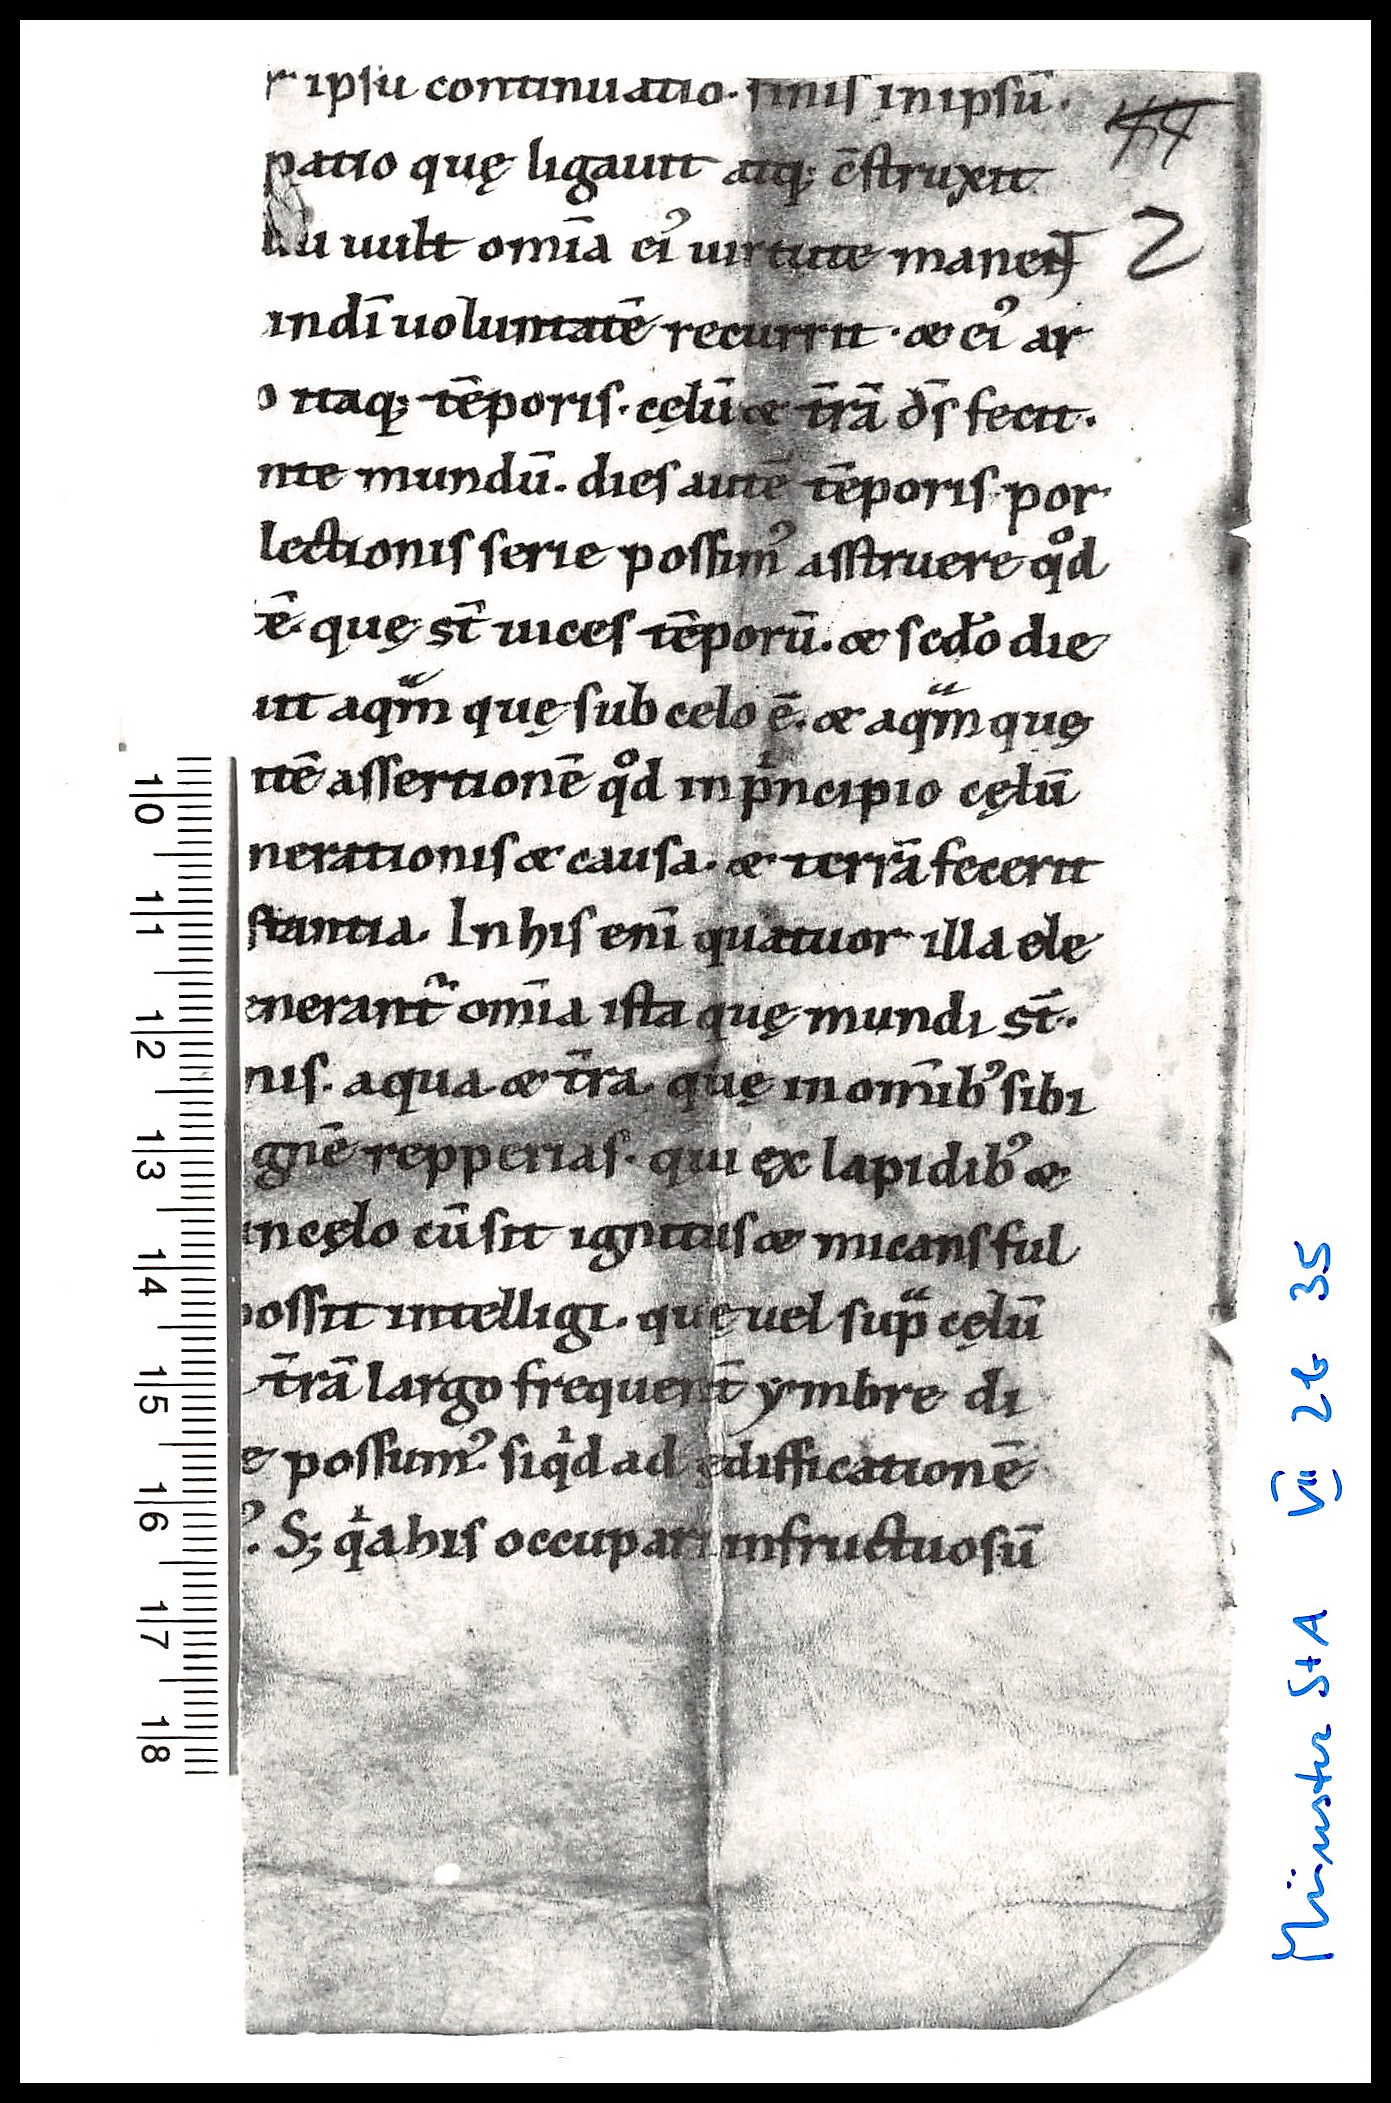 r ipsū continuatio. finis in ipsū.
patio quę ligauit atq; ꝯ̄struxit
du uult om̄ia ei᾽ uirtute manen̄t
in dī uoluntatē recurrit. & ei᾽ ar
o itaq; tēporis. cęlū & t̄rā d̄s fecit.
nte mundū. dies autē tēporis por
lectionis serie possum᾽ asstruere qͦd
tē. quę st̄ uices tēporū. & scd̄o die
uit aqͣm quę sub celo ē. & aqͣm quę
ttē assertionē qͦd in pͥncipio cęlū
nerationis & causa. & terrā fecerit
stantia. In his eni᷑ quatuor illa ele
enerant᷑ om̄ia ista quę mundi st̄.
nis. aqua & t̄ra. quę in om̄ib᾽ sibi
gnē repperias. qui ex lapidib᾽ &
in cęlo cū sit ignitus & micans ful
possit intelligi. quę uel supͣ cęlū
t̄rā largo frequen̄t ymbre di
e possum᾽ siqͥd ad ędifficationē
᾽. S; qͥa his occupari infructuosū
2
10
11
12
13
14
15
16
17
18
Münster StA VII 26 35